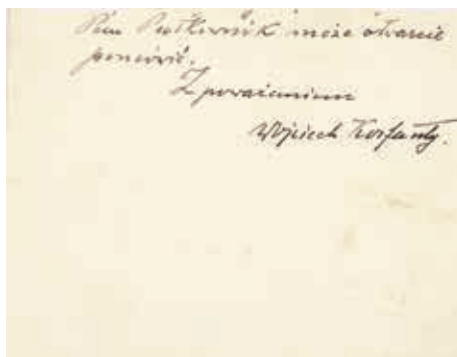 Pan Pułkownik może otwarcie
pomówić.
Z poważaniem
Wojciech Korfanty.